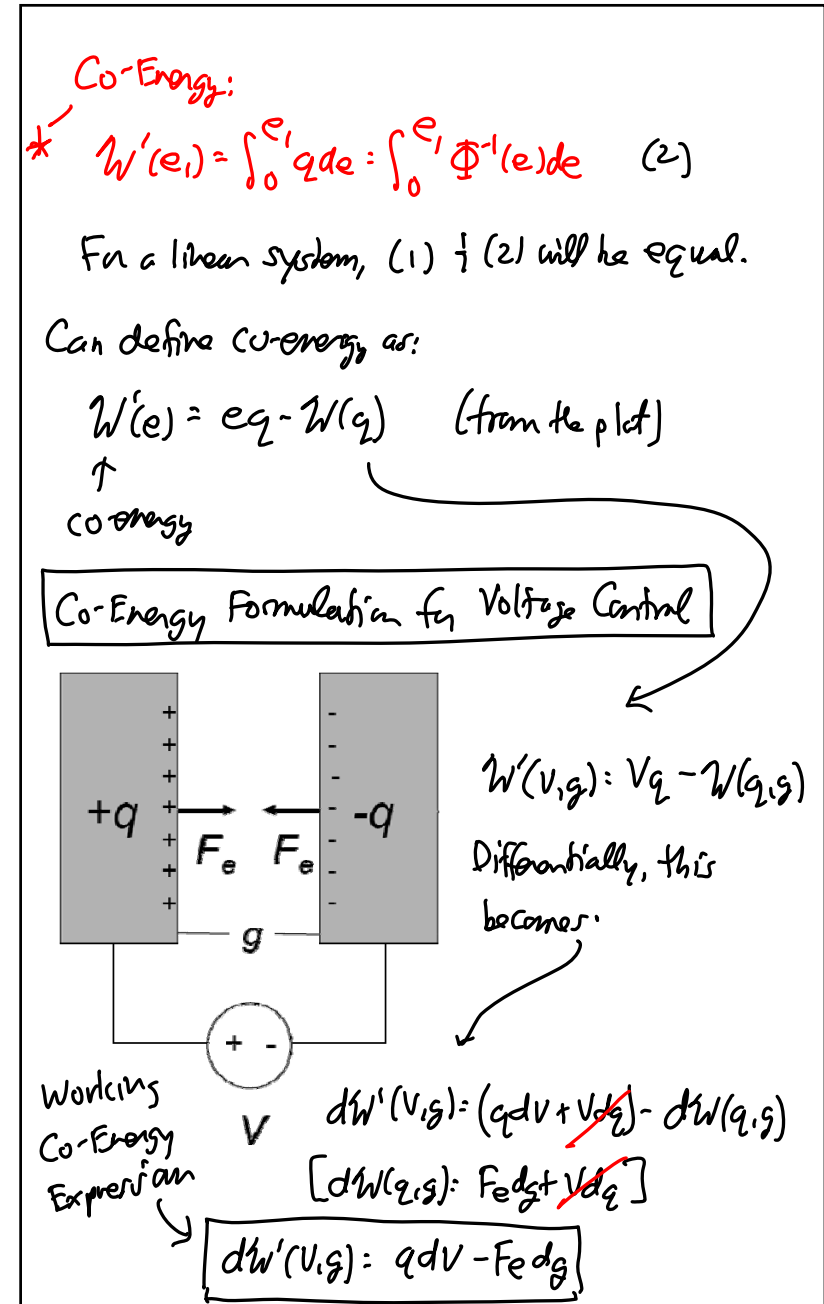 Co-Energy:
* W'(e₁) = ∫₀^e₁ q de = ∫₀^e₁ Φ⁻¹(e)de (2)
For a linear system, (1) & (2) will be equal.
Can define co-energy as:
W'(e) = eq - W(q) (from the plot)
↑
co-energy
Co-Energy Formulation for Voltage Control
+ + + + + + +
- - - - - - -
+q -q
Fₑ Fₑ
g
W'(V,g) = Vq - W(q,g)
Differentially, this
becomes:
+ -
V
Working
Co-Energy
Expression
dW'(V,g) = (qdV + Vdq) - dW(q,g)
[dW(q,g) = Fₑdg + Vdq]
dW'(V,g) = qdV - Fₑdg